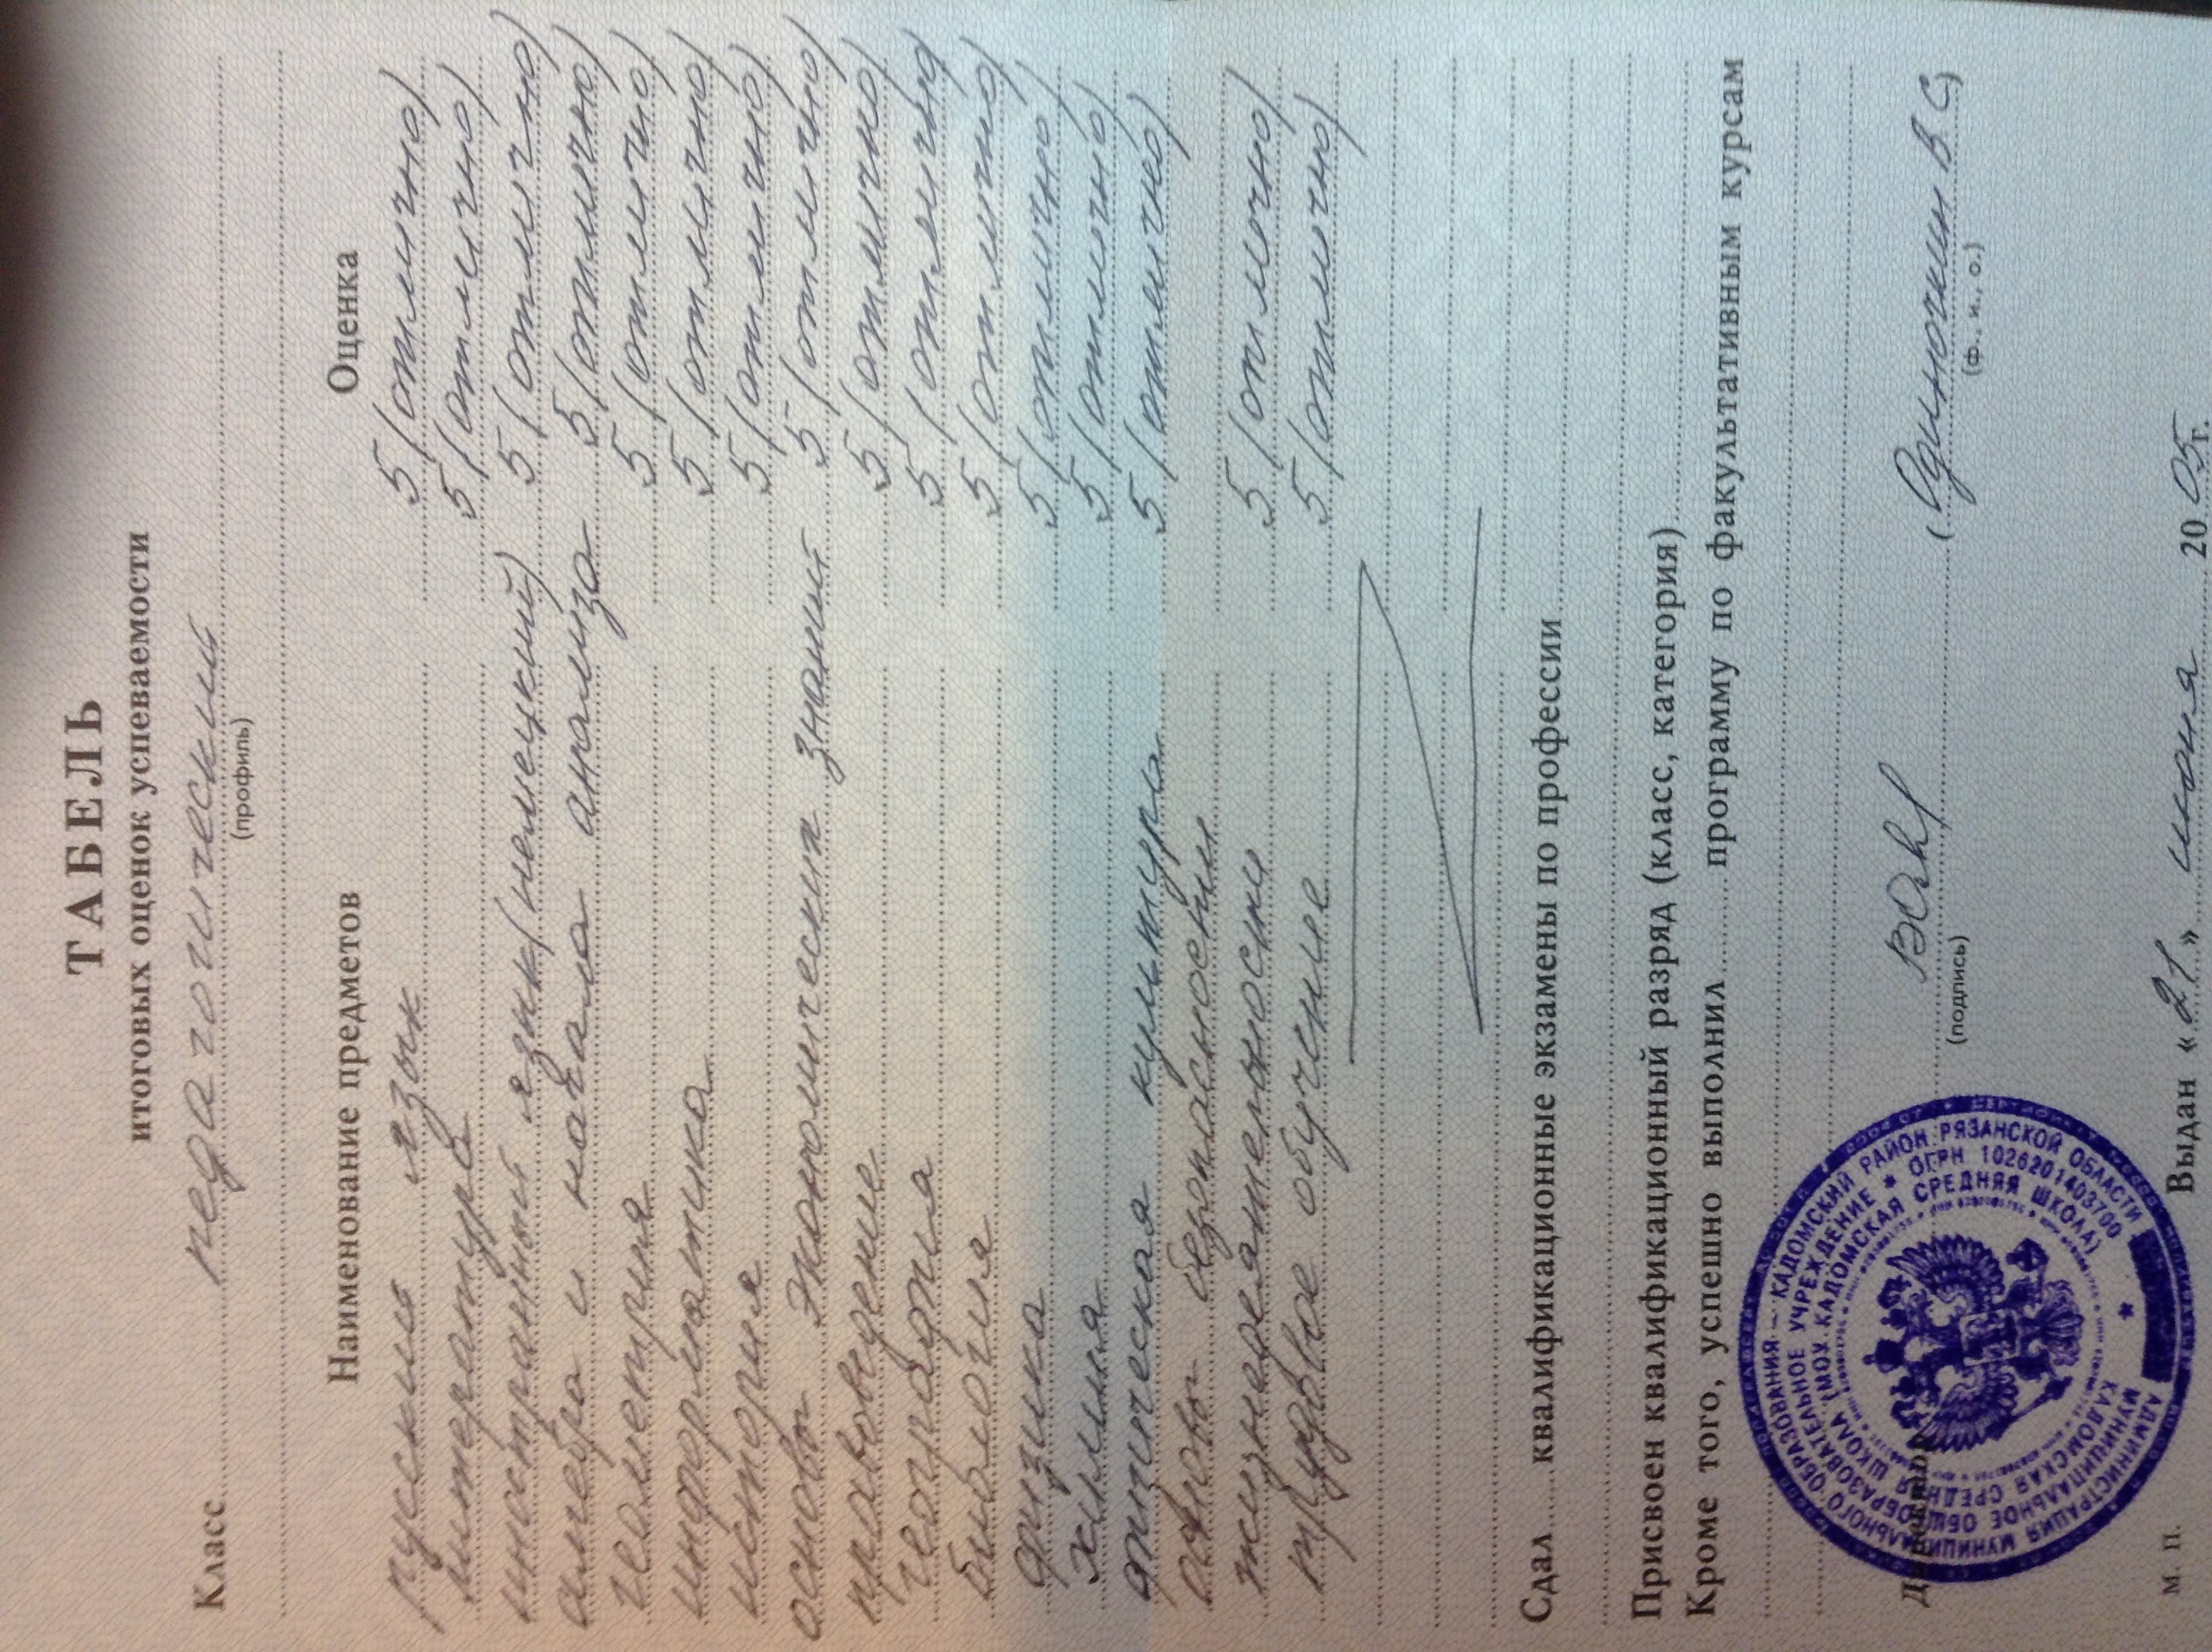 ТАБЕЛЬ
итоговых оценок успеваемости
Класс педагогический
(профиль)
Наименование предметов Оценка
русский язык 5 (отлично)
литература 5 (отлично)
иностранный язык (немецкий) 5 (отлично)
алгебра и начала анализа 5 (отлично)
геометрия 5 (отлично)
информатика 5 (отлично)
история 5 (отлично)
основы экономических знаний 5 (отлично)
правоведение 5 (отлично)
география 5 (отлично)
биология 5 (отлично)
физика 5 (отлично)
химия 5 (отлично)
физическая культура 5 (отлично)
основы безопасности
жизнедеятельности 5 (отлично)
трудовое обучение 5 (отлично)
Сдал квалификационные экзамены по профессии
Присвоен квалификационный разряд (класс, категория)
Кроме того, успешно выполнил программу по факультативным курсам
Директор (Одиночкин В С)
(подпись) (ф., и., о.)
М. П. Выдан «21» июня 2005 г.
АДМИНИСТРАЦИЯ МУНИЦИПАЛЬНОГО ОБРАЗОВАНИЯ – КАДОМСКИЙ РАЙОН РЯЗАНСКОЙ ОБЛАСТИ
МУНИЦИПАЛЬНОЕ ОБЩЕОБРАЗОВАТЕЛЬНОЕ УЧРЕЖДЕНИЕ * ОГРН 1026201403700
КАДОМСКАЯ СРЕДНЯЯ ШКОЛА (МОУ КАДОМСКАЯ СРЕДНЯЯ ШКОЛА)